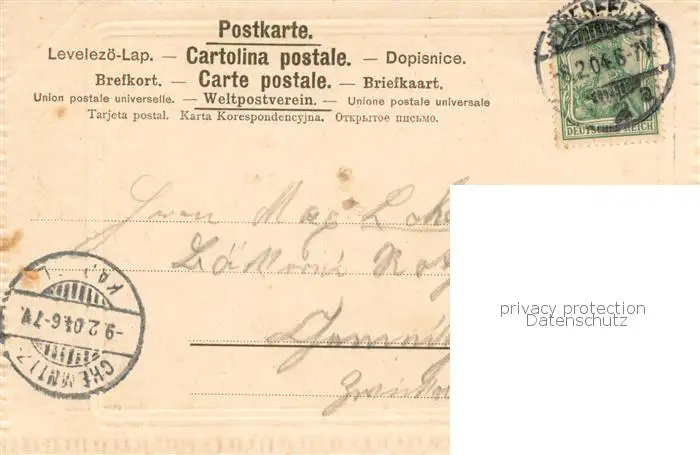 Postkarte.
Levelezö-Lap. — Cartolina postale. — Dopisnice.
Brefkort. — Carte postale. — Briefkaart.
Union postale universelle. — Weltpostverein. — Unione postale universale
Tarjeta postal. Karta Korespondencyjna. Открытое письмо.
8.2.04.6-7N.
DEUTSCHES REICH
Herrn Max
Bäckerei
Chemnitz
privacy protection
Datenschutz
-9.2.04.6-7V.
CHEMNITZ